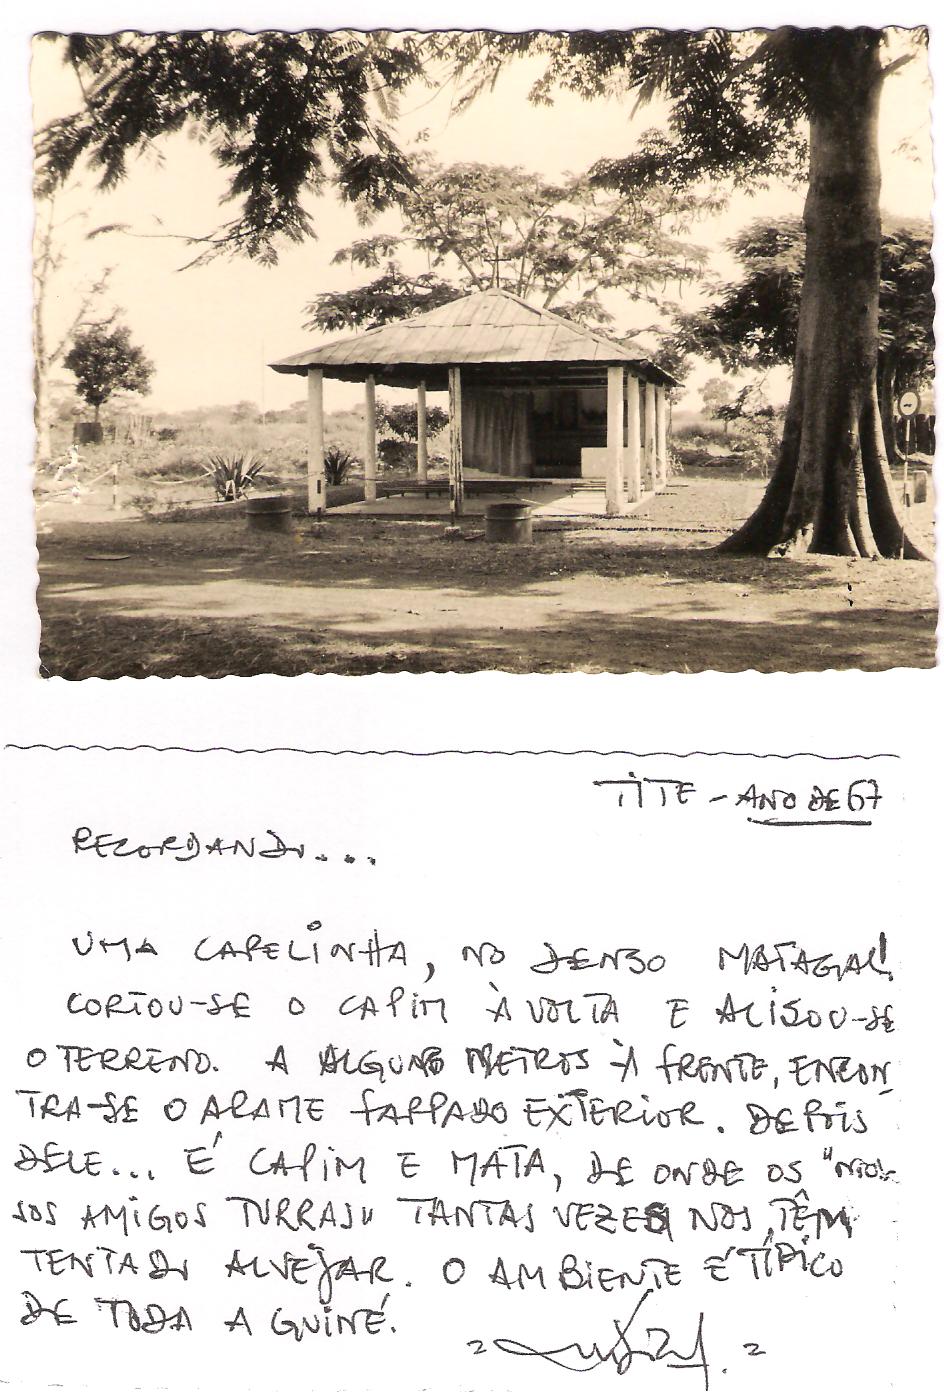 TITE - ANO DE 67
RECORDANDO...
UMA CAPELINHA, NO DENSO MATAGAL!
CORTOU-SE O CAPIM À VOLTA E ALISOU-SE
O TERRENO. A ALGUNS METROS À FRENTE, ENCON-
TRA-SE O ARAME FARPADO EXTERIOR. DEPOIS
DELE... É CAPIM E MATA, DE ONDE OS "NOS-
SOS AMIGOS TURRAS" TANTAS VEZES NOS TÊM
TENTADO ALVEJAR. O AMBIENTE É TÍPICO
DE TODA A GUINÉ.